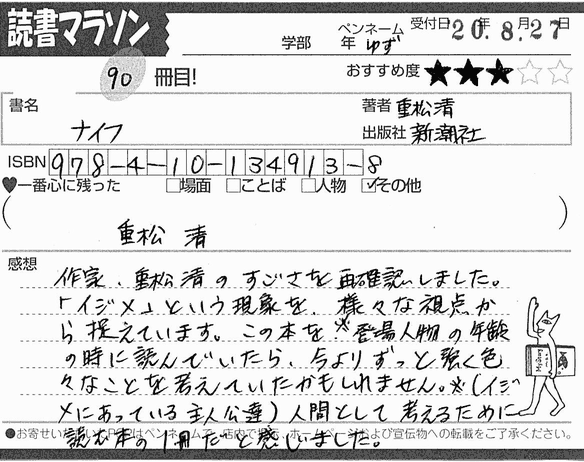 読書マラソン
学部 年 ペンネーム ゆず 受付日 20年 8月27日
90 冊目! おすすめ度 ★★★☆☆
書名 ナイフ
著者 重松清
出版社 新潮社
ISBN 978-4-10-134913-8
♥一番心に残った □場面 □ことば □人物 ☑その他
( 重松 清 )
感想
作家、重松清のすごさを再確認しました。
「イジメ」という現象を、様々な視点か
ら捉えています。この本を※登場人物の年齢
の時に読んでいたら、今よりずっと強く色
々なことを考えていたかもしれません。※(イジ
メにあっている主人公達)人間として考えるために
読む本の1冊だと感じました。
●お寄せいただいたPOPはペンネームで、店内で掲示、ホームページおよび宣伝物への転載をご了承ください。